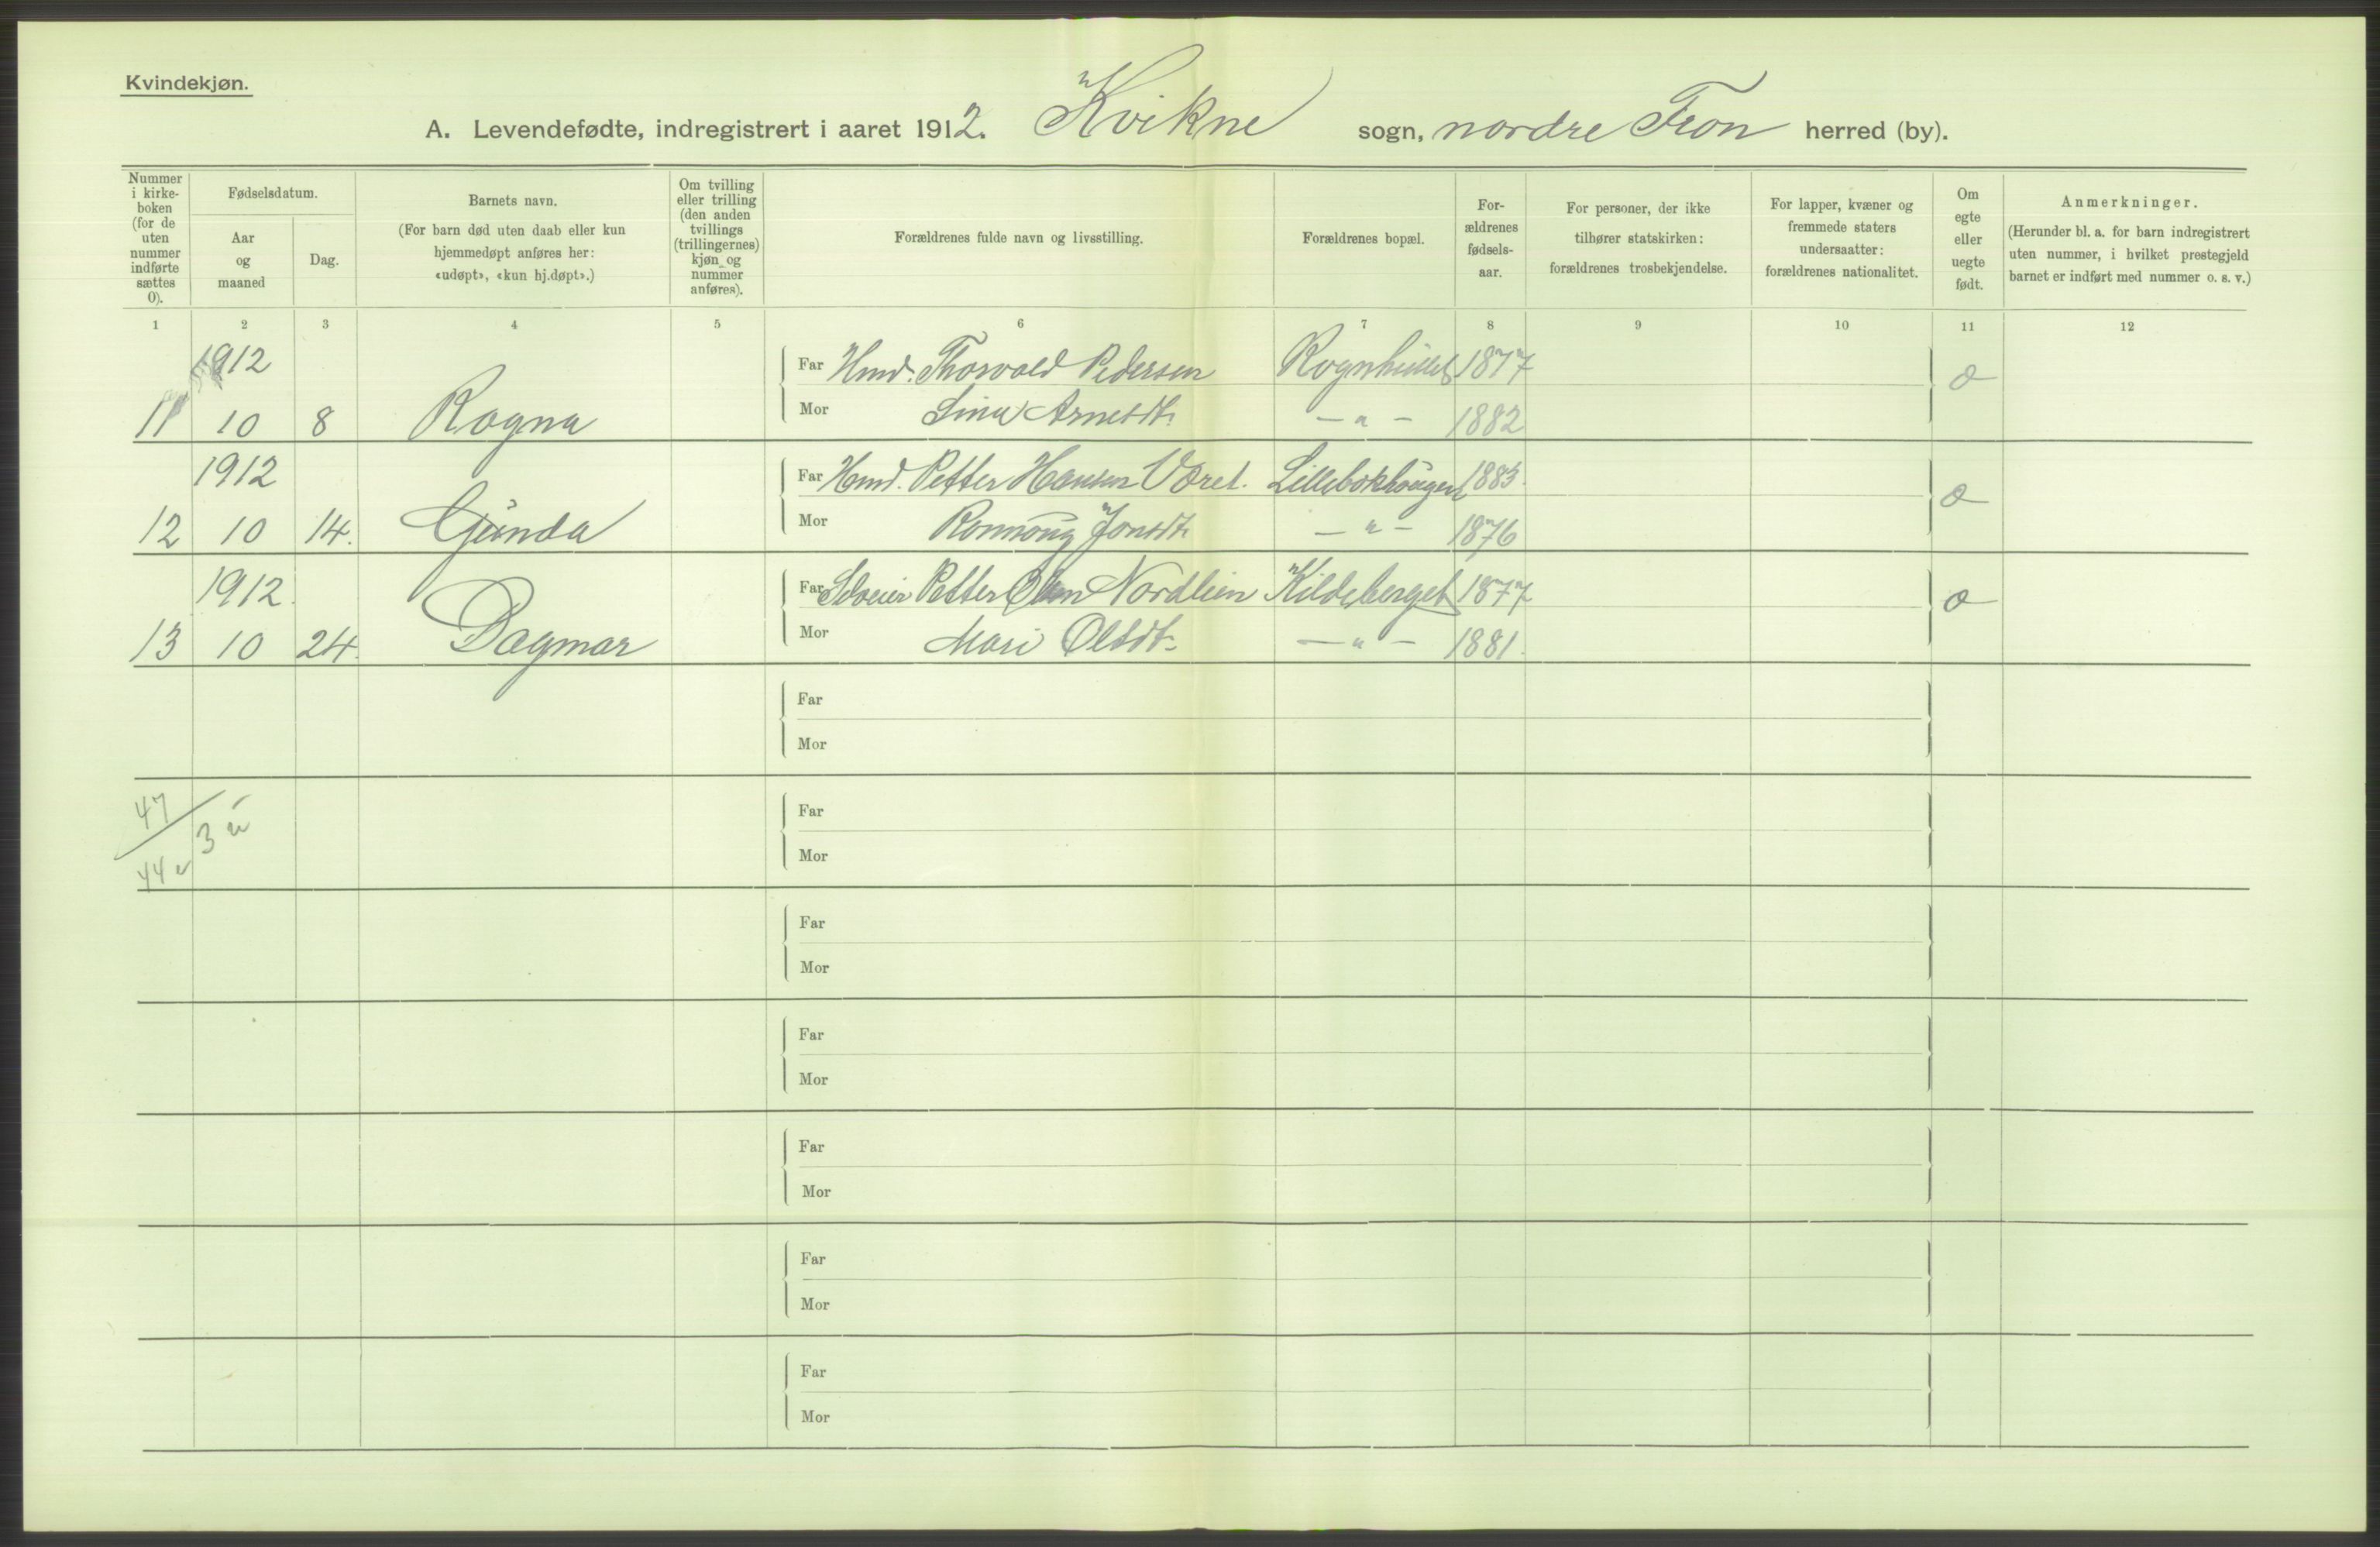 Kvindekjøn.
A. Levendefødte, indregistrert i aaret 1912. Kvikne sogn, nordre Fron herred (by).
Nummer i kirke-boken (for de uten nummer indførte sættes 0).
Fødselsdatum.
Aar og maaned
Dag.
Barnets navn.
(For barn død uten daab eller kun hjemmedøpt anføres her: «udøpt», «kun hj.døpt».)
Om tvilling eller trilling (den anden tvillings (trillingernes) kjøn og nummer anføres).
Forældrenes fulde navn og livsstilling.
Forældrenes bopæl.
For-ældrenes fødsels-aar.
For personer, der ikke tilhører statskirken: forældrenes trosbekjendelse.
For lapper, kvæner og fremmede staters undersaatter: forældrenes nationalitet.
Om egte eller uegte født.
Anmerkninger.
(Herunder bl. a. for barn indregistrert uten nummer, i hvilket prestegjeld barnet er indført med nummer o. s. v.)
1 2 3 4 5 6 7 8 9 10 11 12
1912 Far Hmd. Thorvald Pedersen 1877
11 10 8 Ragna Mor Lina Arnesdt. — " — 1882
1912 Far Hmd. Petter Hansen 1883
12 10 14. Gunda Mor Jonsdt. — " — 1876
1912. Far Petter Olsen Nordlien Kildeberget 1877
13 10 24. Dagmar Mor Mari Olsdt. — " — 1881.
Far
Mor
47
3 u
44 e
Far
Mor
Far
Mor
Far
Mor
Far
Mor
Far
Mor
Far
Mor